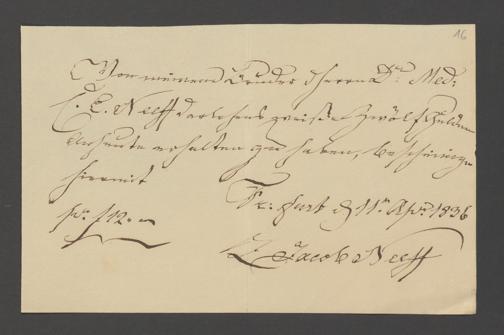 16
Von meinem Bruder Herrn Dr: Med:
C. E. Neeff darlehensweise Zwölf Gulden
anheute erhalten zu haben, bescheinige
hiermit
pr. f 12.—
Fr: furt d 11n Apr 1836
Jacob Neeff